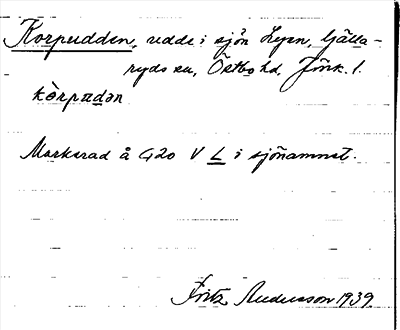 Korpudden, udde i sjön Lyen, Gälla-
ryds sn, Östbo hd, Jönk. l.
kòrpᵾdən
Markerad å G20 V L i sjönamnet.
Fritz Andersson 1939.